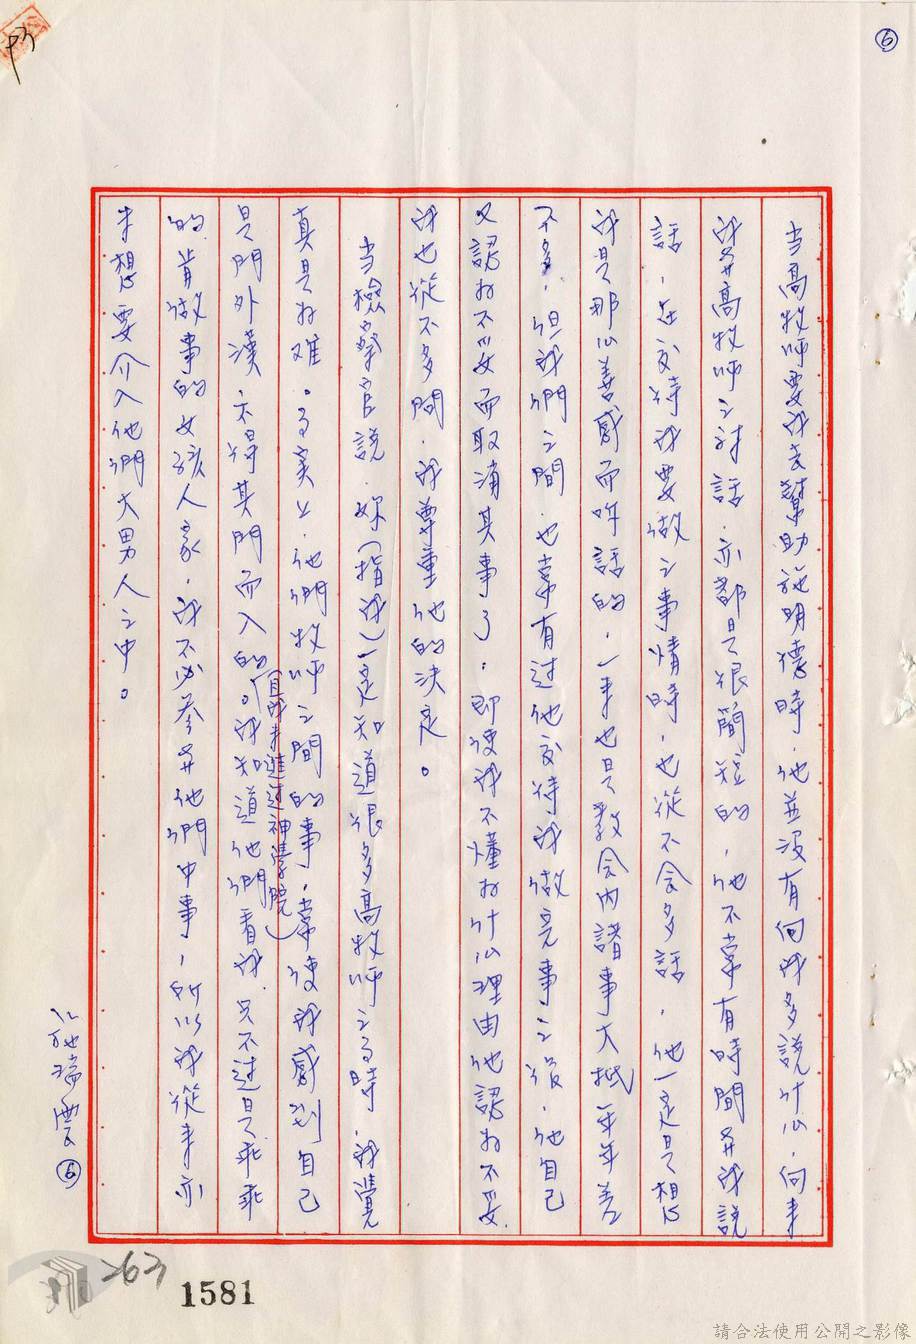 ⑥
P3
当高牧師要我去幫助施明德時，他並没有向我多説什么，向来
我與高牧師之対話，亦都是很簡短的，他不常有時間與我説
話，在交待我要做之事情時，也從不会多話，他一定是想
我是那么善感而吽話的，一来也是教会内諸事大抵年年差
不多，但我們之間，也常有过他交待我做完事之後，他自己
又認为不妥而取消其事了；即使我不懂为什么理由他認为不妥，
我也從不多問，我尊重他的決定。
当檢察官説，妳（指我）一定知道很多高牧师之事時，我覺
真是为难。事实上，他們牧师之間的事，常使我感到自己
是門外漢，不得其門而入的。（且我未進过神學院）我知道他們看我，只不过是乖乖
的，肯做事的女孩人家，我不必參與他們中事，所以我從来亦
未想要介入他們大男人之中。
⑥
263
1581
請合法使用公開之影像